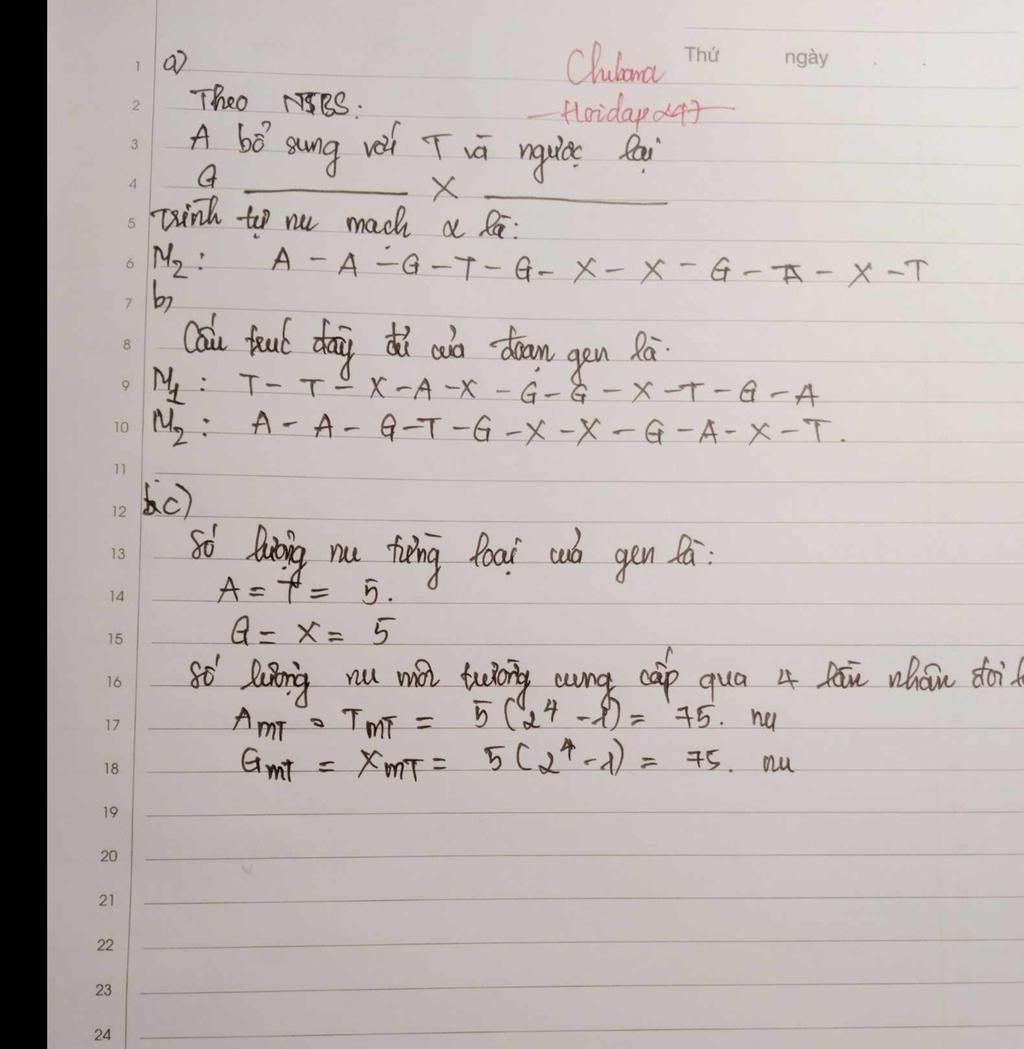 Thứ ngày
1 a)
Chibana
2 Theo NTBS:
Hoidap247
3 A bổ sung với T và ngược lại
4 G ______ X ______
5 Trình tự nu mạch 2 là:
6 M2: A - A - G - T - G - X - X - G - A - X - T
7 b)
8 Cấu trúc đầy đủ của đoạn gen là:
9 M1: T - T - X - A - X - G - G - X - T - G - A
10 M2: A - A - G - T - G - X - X - G - A - X - T.
11
12 c)
13 Số lượng nu từng loại của gen là:
14 A = T = 5.
15 G = X = 5
16 Số lượng nu môi trường cung cấp qua 4 lần nhân đôi
17 AMT = TMT = 5(2^4 - 1) = 75. nu
18 GMT = XMT = 5(2^4 - 1) = 75. nu
19
20
21
22
23
24